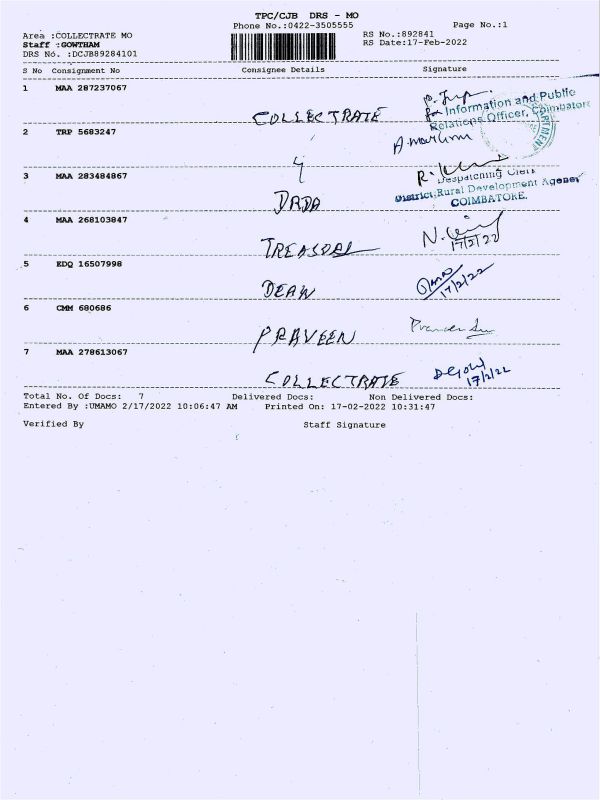 TPC/CJB DRS - MO
Phone No.:0422-3505555 Page No.:1
Area :COLLECTRATE MO RS No.:892841
Staff :GOWTHAM RS Date:17-Feb-2022
DRS No. :DCJB89284101
S No Consignment No Consignee Details Signature
1 MAA 287237067 COLLECTRATE
for Information and Public
Relations Officer, Coimbatore
2 TRP 5683247 4
3 MAA 283484867 DRDA
Despatching Clerk
District Rural Development Agency
COIMBATORE.
4 MAA 268103847 N.
17/2/22
5 EDQ 16507998 DEAN
17/2/22
6 CMM 680686 PRAVEEN
7 MAA 278613067 COLLECTRATE
17/2/22
Total No. Of Docs: 7 Delivered Docs: Non Delivered Docs:
Entered By :UMAMO 2/17/2022 10:06:47 AM Printed On: 17-02-2022 10:31:47
Verified By Staff Signature